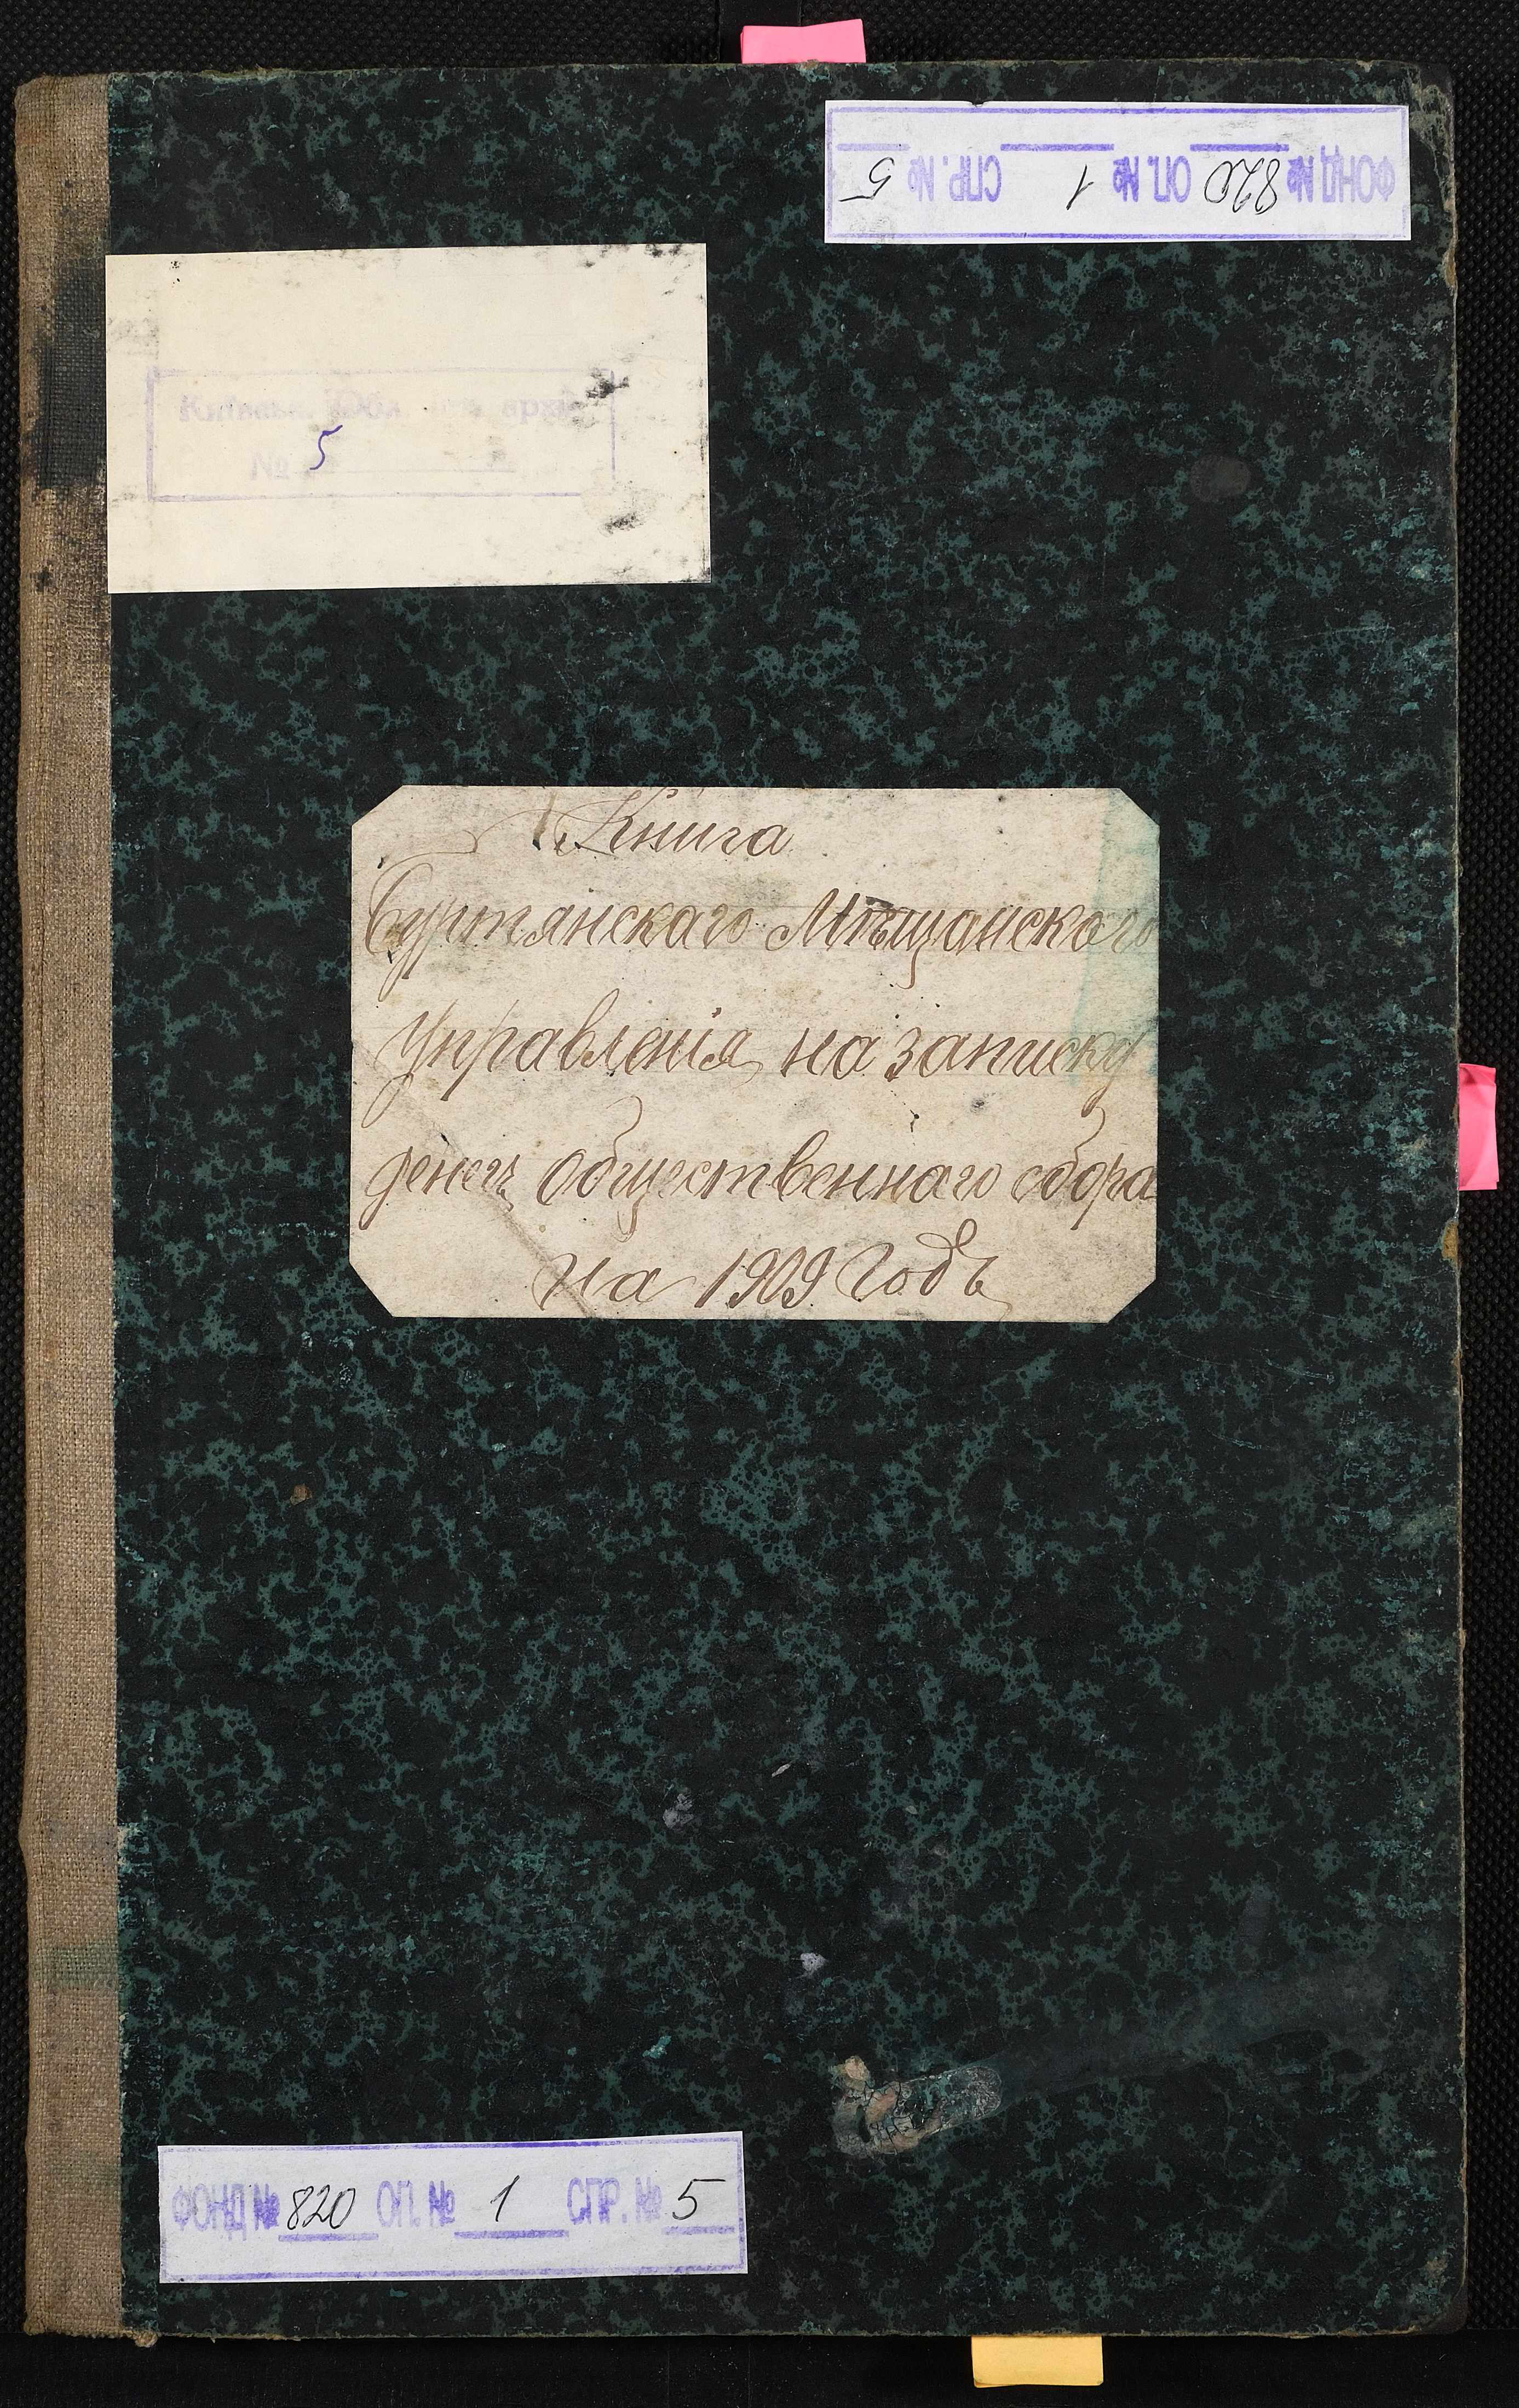 ФОНД № 820 ОП. № 1 СПР. № 5
№ 5
Книга
Буртянскаго Мѣщанскаго
Управленія на записку
денегъ общественнаго сбора
на 1909 годъ
ФОНД № 820 ОП. № 1 СПР. № 5